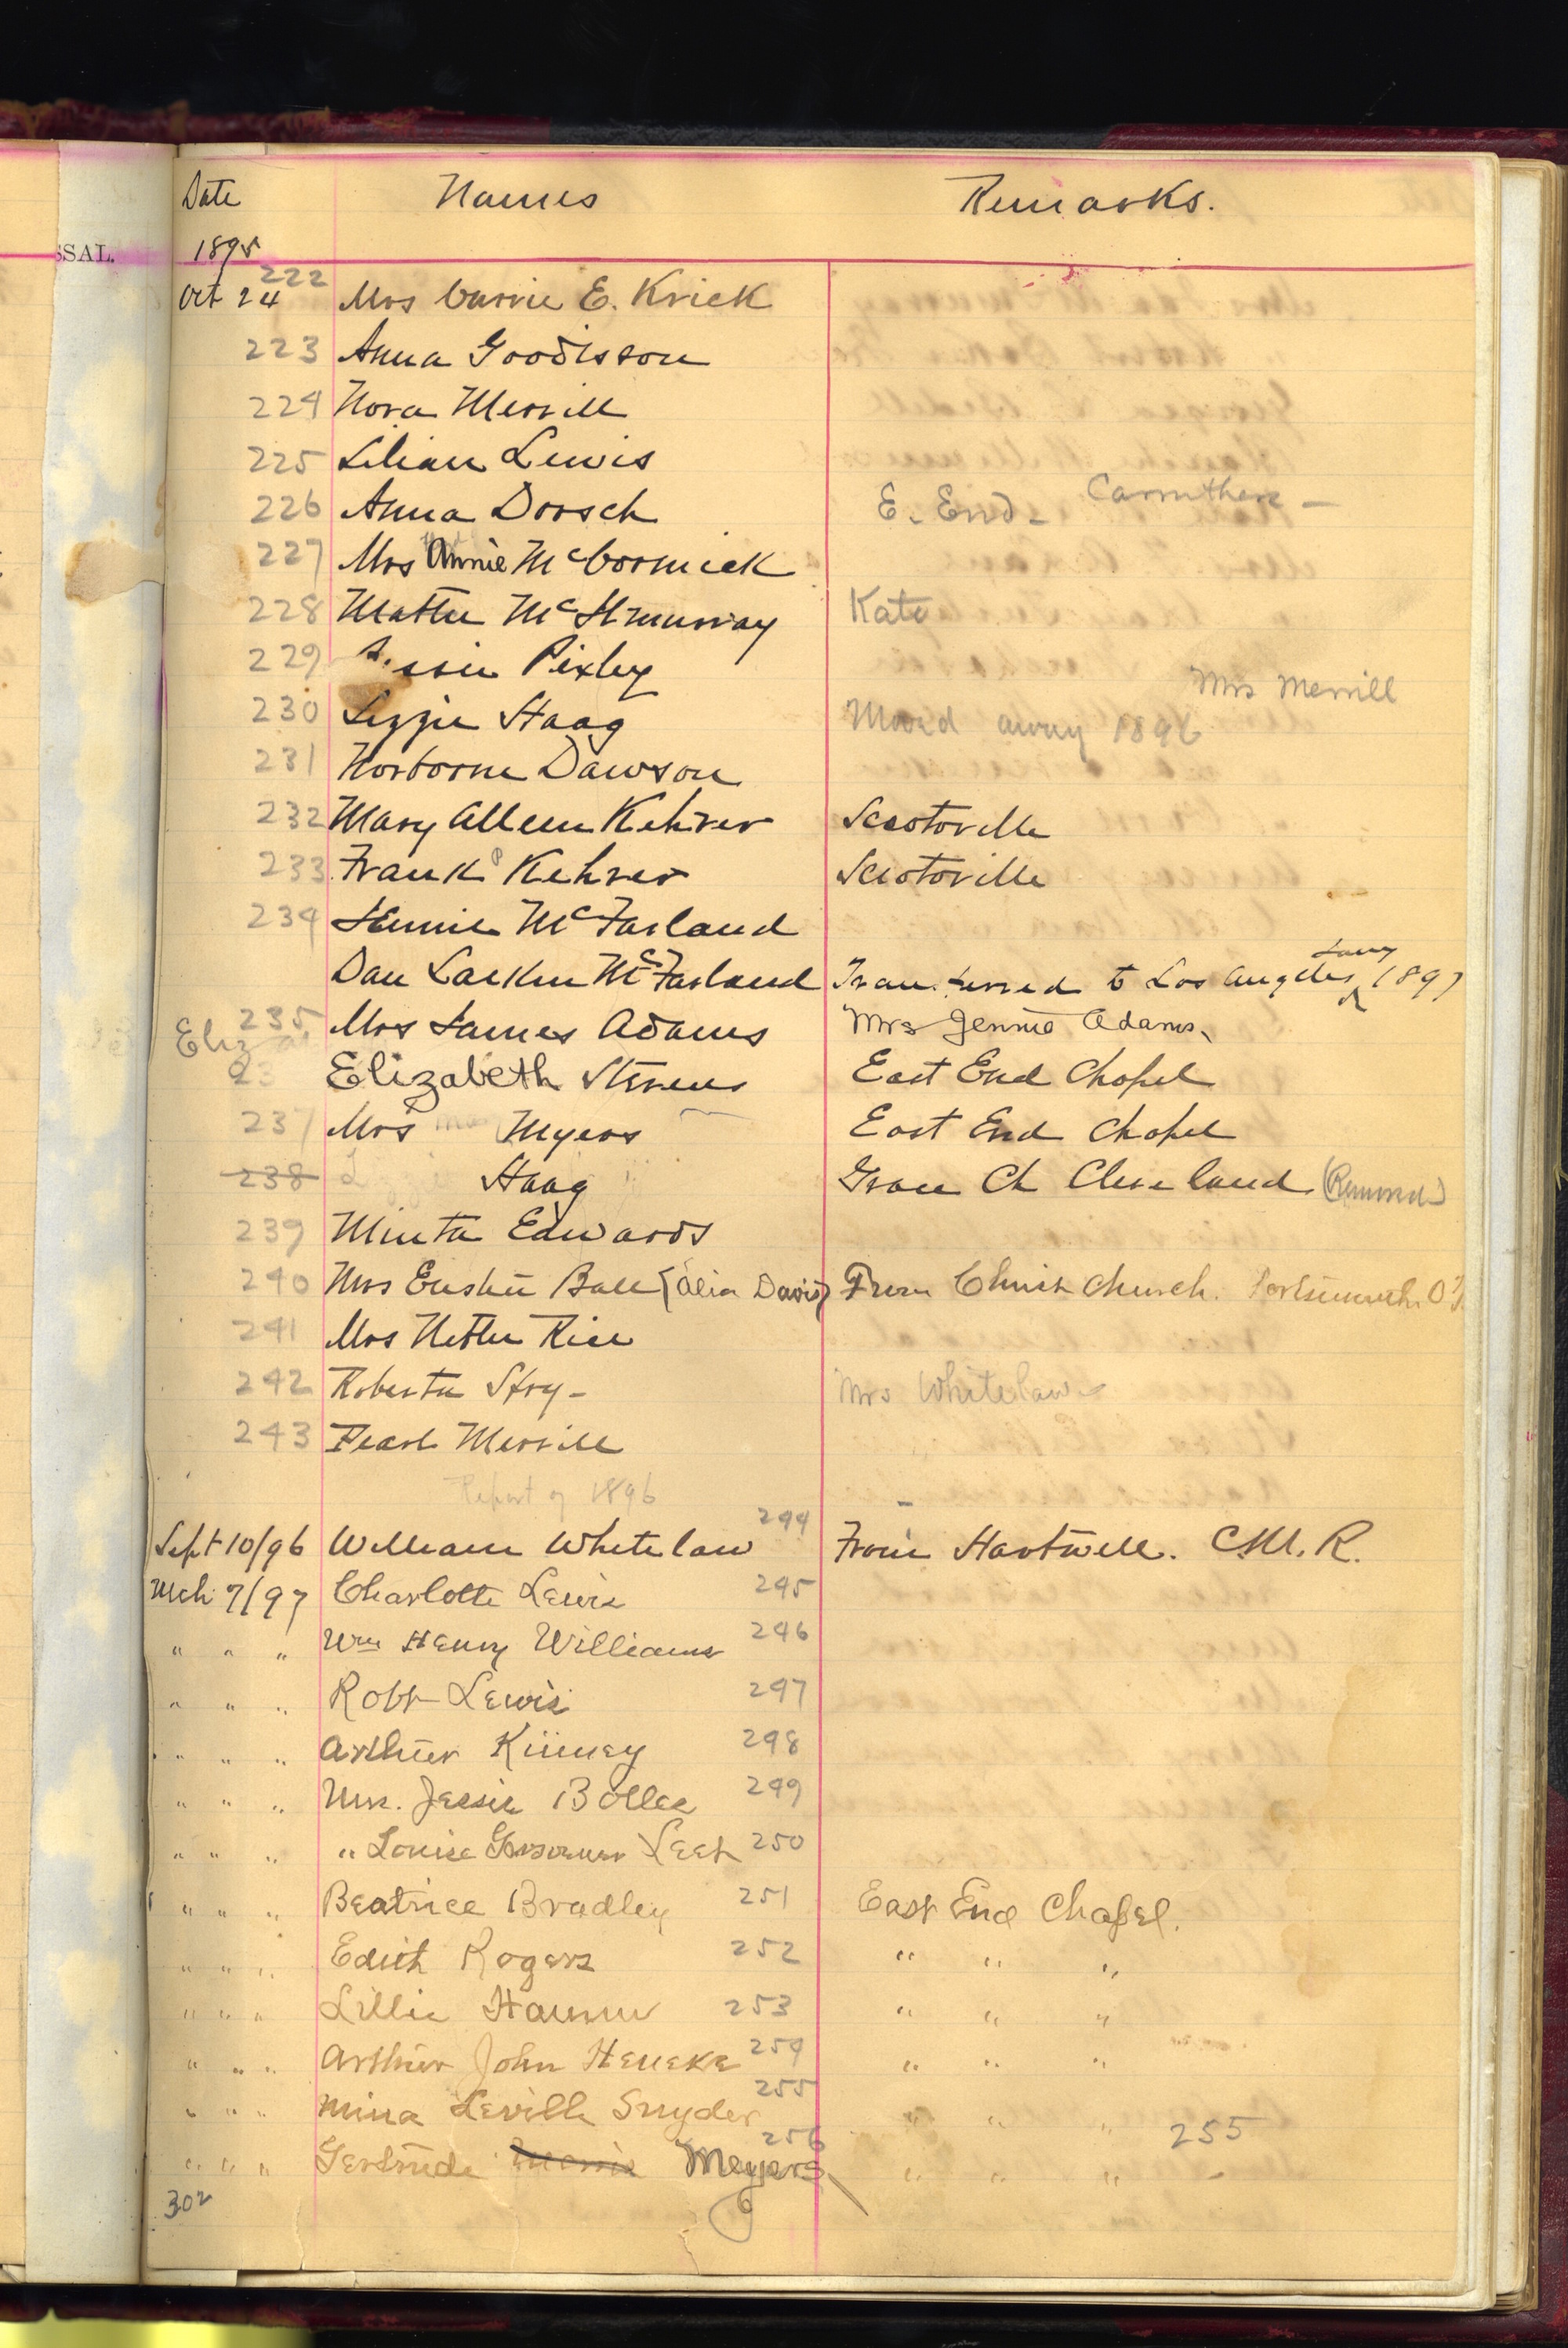 Date Names Remarks.
SSAL.
1895
222
Oct 24 Mrs Carrie E. Krick
223 Anna Goodisson
224 Nora Merrill
225 Lilian Lewis
226 Anna Dorsch E. End - Carruthers -
227 Mrs Annie McCormick
228 Mattie McMurray Kate
229 Pixley
Mrs Merrill
230 Lizzie Haag Moved away 1896
231 Norborne Dawson
232 Mary Alleen Kehrer Sciotoville
233 Frank P Kehrer Sciotoville
234 Jennie McFarland
Dan Larkin McFarland Transferred to Los Angeles 1897
235 Mrs James Adams Mrs Jennie Adams.
Eliza
23 Elizabeth Stevens East End Chapel
237 Mrs Myers East End Chapel
238 Haag Grace Ch Cleveland (Removed)
239 Minta Edwards
240 Mrs Ball (Davis) From Christ Church. Portsmouth O
241 Mrs Nettie Rice
242 Roberta Stry - Mrs Whitelaw
243 Pearl Merrill
Report of 1896
Sept 10/96 William Whitelaw 244 From Hartwell. C.M.R.
Mch 7/97 Charlotte Lewis 245
" " " Wm Henry Williams 246
" " " Robt Lewis 247
" " " Arthur Kinney 248
" " " Mrs. Jessie Bolles 249
" " " " Louise Leet 250
" " " Beatrice Bradley 251 East End Chapel.
" " " Edith Rogers 252 " " "
" " " Lillie 253 " " "
" " " Arthur John Heneke 254 " " "
" " " Mina Leville Snyder 255 " " " 255
" " " Gertrude Meyers 256 " " "
302